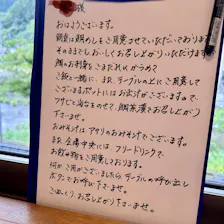 様
おはようございます。
朝食は鯛めしをご用意させていただいております
そのままでも、おいしくお召し上がりいただけます
鯛のお刺身をごまだれにからめて
ご飯と一緒に、また、テーブルの上にご用意して
ございますポットにはお出汁がございますので、
ワサビと海苔をのせて、鯛茶漬でお召し上がり
下さいませ。
おみそ汁は、アサリのおみそ汁でございます。
また、会場中央には、フリードリンクで、
お飲み物をご用意しております。
何かご用がございましたら、テーブルの呼び出し
ボタンでお呼び下さいませ。
ごゆっくり、お召し上がり下さいませ。